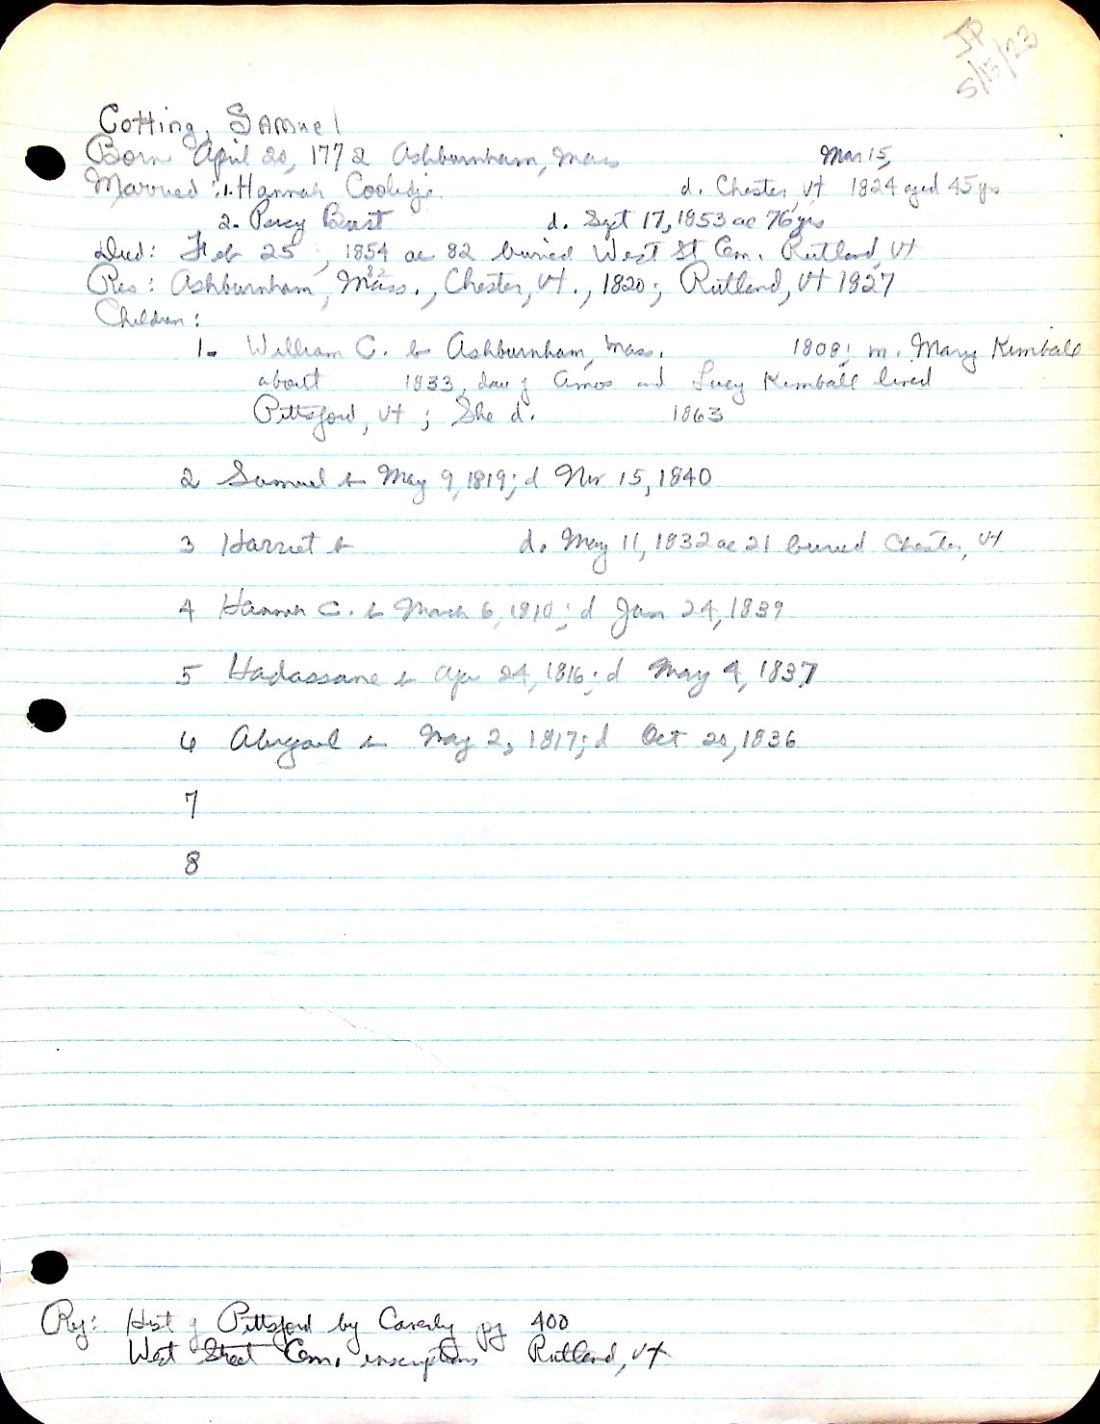 JP
5/15/23
Cotting, Samuel
Born April 20, 1772 Ashburnham, Mass
Mar 15,
Married: 1. Hannah Coolidge d. Chester, Vt 1824 aged 45 yrs
2. Percy Burt d. Sept 17, 1853 ae 76 yrs
Died: Feb 25, 1854 ae 82 buried West St Cem. Rutland, Vt
82
Res: Ashburnham, Mass., Chester, Vt., 1820; Rutland, Vt 1827
Children:
1. William C. b Ashburnham, Mass. 1808; m. Mary Kimball
about 1833, dau of Amos and Lucy Kimball lived
Pittsford, Vt; She d. 1863
2 Samuel b May 9, 1819; d Nov 15, 1840
3 Harriet b d. May 11, 1832 ae 21 buried Chester, Vt
4 Hannah C. b March 6, 1810; d Jan 24, 1839
5 Hadassane b Apr 24, 1816; d May 4, 1837
6 Abigail b May 2, 1817; d Oct 20, 1836
7
8
Ref: Hist of Pittsford by Caverly pg 400
West Street Cem. inscriptions Rutland, Vt